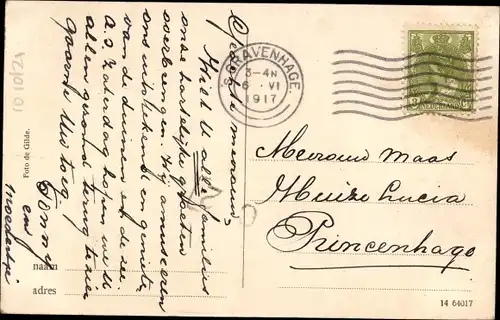 Geachte mevrouw,
Wilt U alle families
onze hartelijke groeten
overbrengen. Wij amuseren
ons uitstekend en genieten
van de duinen en de zee.
a.s. Zaterdag hopen we U
allen gezond terug te zien
Uw toeg.
Sonny
en
Moedertje
naam
adres
Foto de Gilde.
's GRAVENHAGE.
3-4N
6 VI
1917
NEDERLAND
Mevrouw Maas
Huize Lucia
Princenhage
14 64017